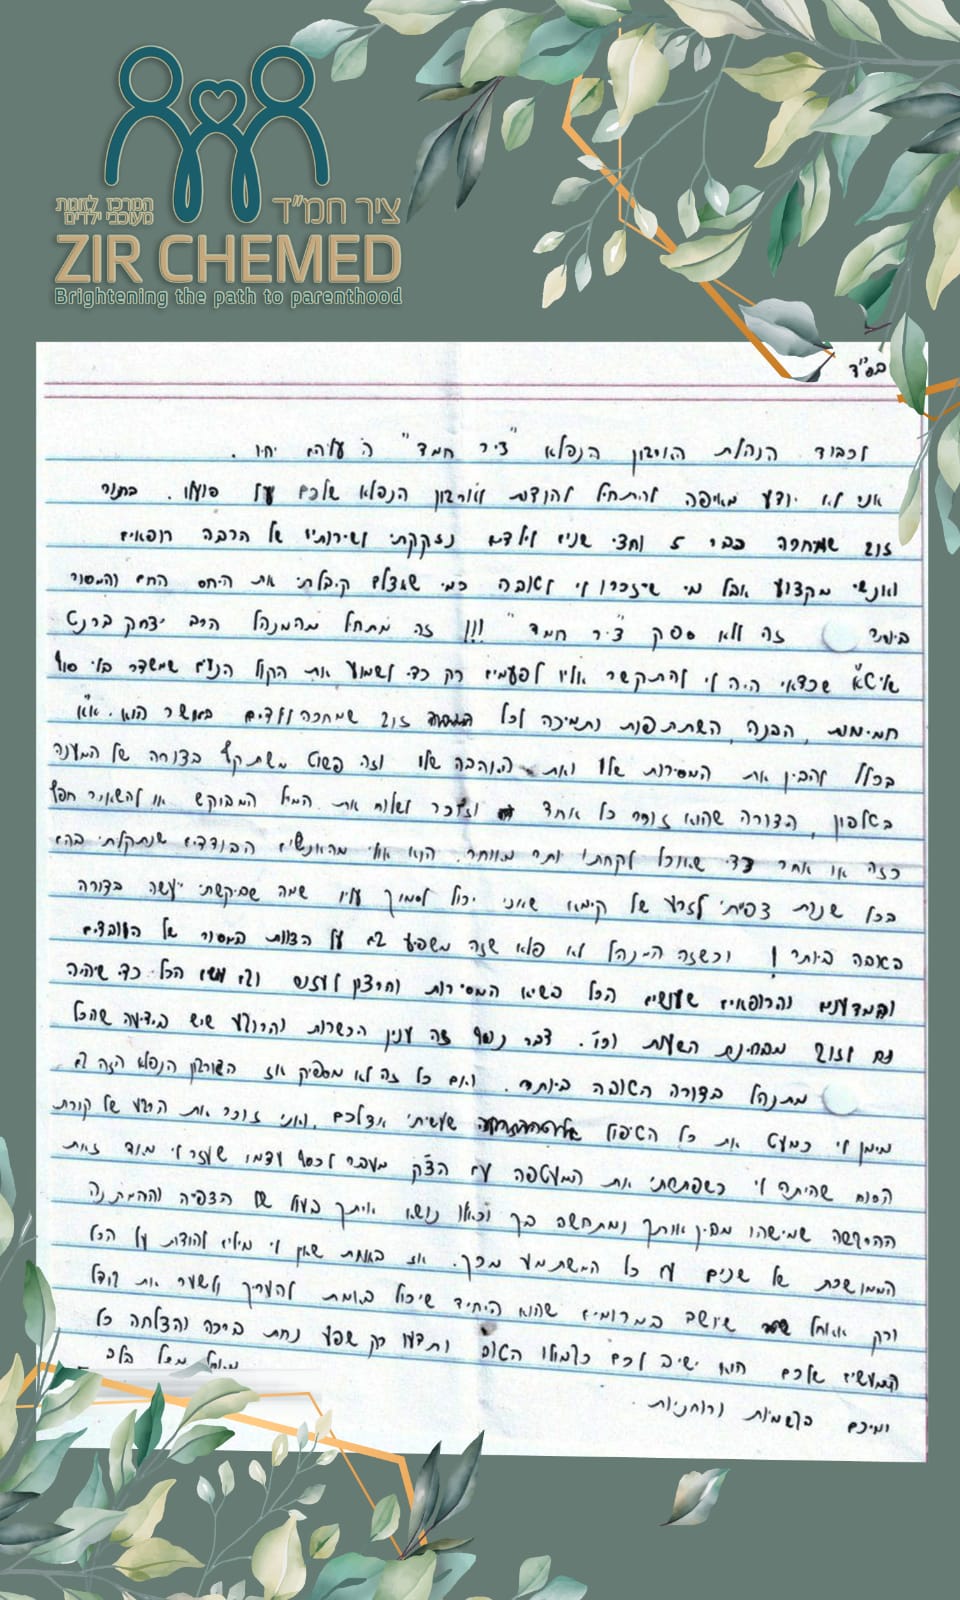 המרכז לזוגות
מעוכבי ילדים
ציר חמ״ד
ZIR CHEMED
Brightening the path to parenthood
בס״ד
לכבוד הנהלת הארגון הנפלא "ציר חמד" ה' עליהם יחיו.
אני לא יודע מאיפה להתחיל להודות לארגון הנפלא שלכם על פועלו. בתור
זוג שמחכה כבר 5 וחצי שנים לילדים נזקקתי לשירותיו של הרבה רופאים
ואנשי מקצוע אבל מי שיזכרו לי לטובה כמי שאצלם קיבלתי את היחס החם והמסור
ביותר זה ללא ספק "ציר חמד" !!! זה מתחיל מהמנהל הרב יצחק ברנט
שליט"א שכדאי היה לי להתקשר אליו לפעמים רק כדי לשמוע את הקול הנעים שמשדר בלי סוף
חמימות, הבנה, השתתפות ותמיכה לכל זוג שמחכה לילדים באשר הוא. א"א
בכלל להבין את המסירות שלו ואת האהבה שלו וזה פשוט משתקף בצורה של המענה
בטלפון, הצורה שהוא זוכר כל אחד וזוכר לשלוח את המייל המבוקש או להשאיר חפץ
כזה או אחר כדי שאוכל לקחתו יותר מאוחר. הוא אולי מהאנשים הבודדים שנתקלתי בהם
בכל שנות צפייתי לזרע של קיימא שאני יכול לסמוך עליו שמה שביקשתי יעשה בצורה
הטובה ביותר! וכשזה המנהל לא פלא שזה משפיע גם על הצוות המסור של העובדים
ובמדענים והרופאים שעושים הכל בשיא המסירות והרצון לעזור וגם עושים הכל כדי שיהיה
נח לזוג מבחינת השעות וכו'. דבר נוסף זה ענין הכשרות והרוגע שיש בידיעה שהכל
מתנהל בצורה הטובה ביותר. ואם כל זה לא מספיק אז הארגון הנפלא הזה גם
מימן לי כמעט את כל הטיפול שעשיתי אצלכם, ואני זוכר את הרגע של קורת
הרוח שהיתה לי כשפתחתי את המעטפה עם הצ'ק מעבר לכסף עצמו שעזר לי מאוד זאת
ההרגשה שמישהו מבין אותך ומתחשב בך וכאלו נושא איתך בעול של הצפיה וההמתנה
הממושכת של שנים עם כל המשתמע מכך. אז באמת שאין לי מילים להודות על הכל
ורק אאחל שיושב במרומים שהוא היחיד שיכול באמת להעריך ולשער את גודל
המעשים שלכם הוא ישיב לכם כגמולו הטוב ותדעו רק שפע נחת ברכה והצלחה כל
ימיכם בגשמיות ורוחניות.